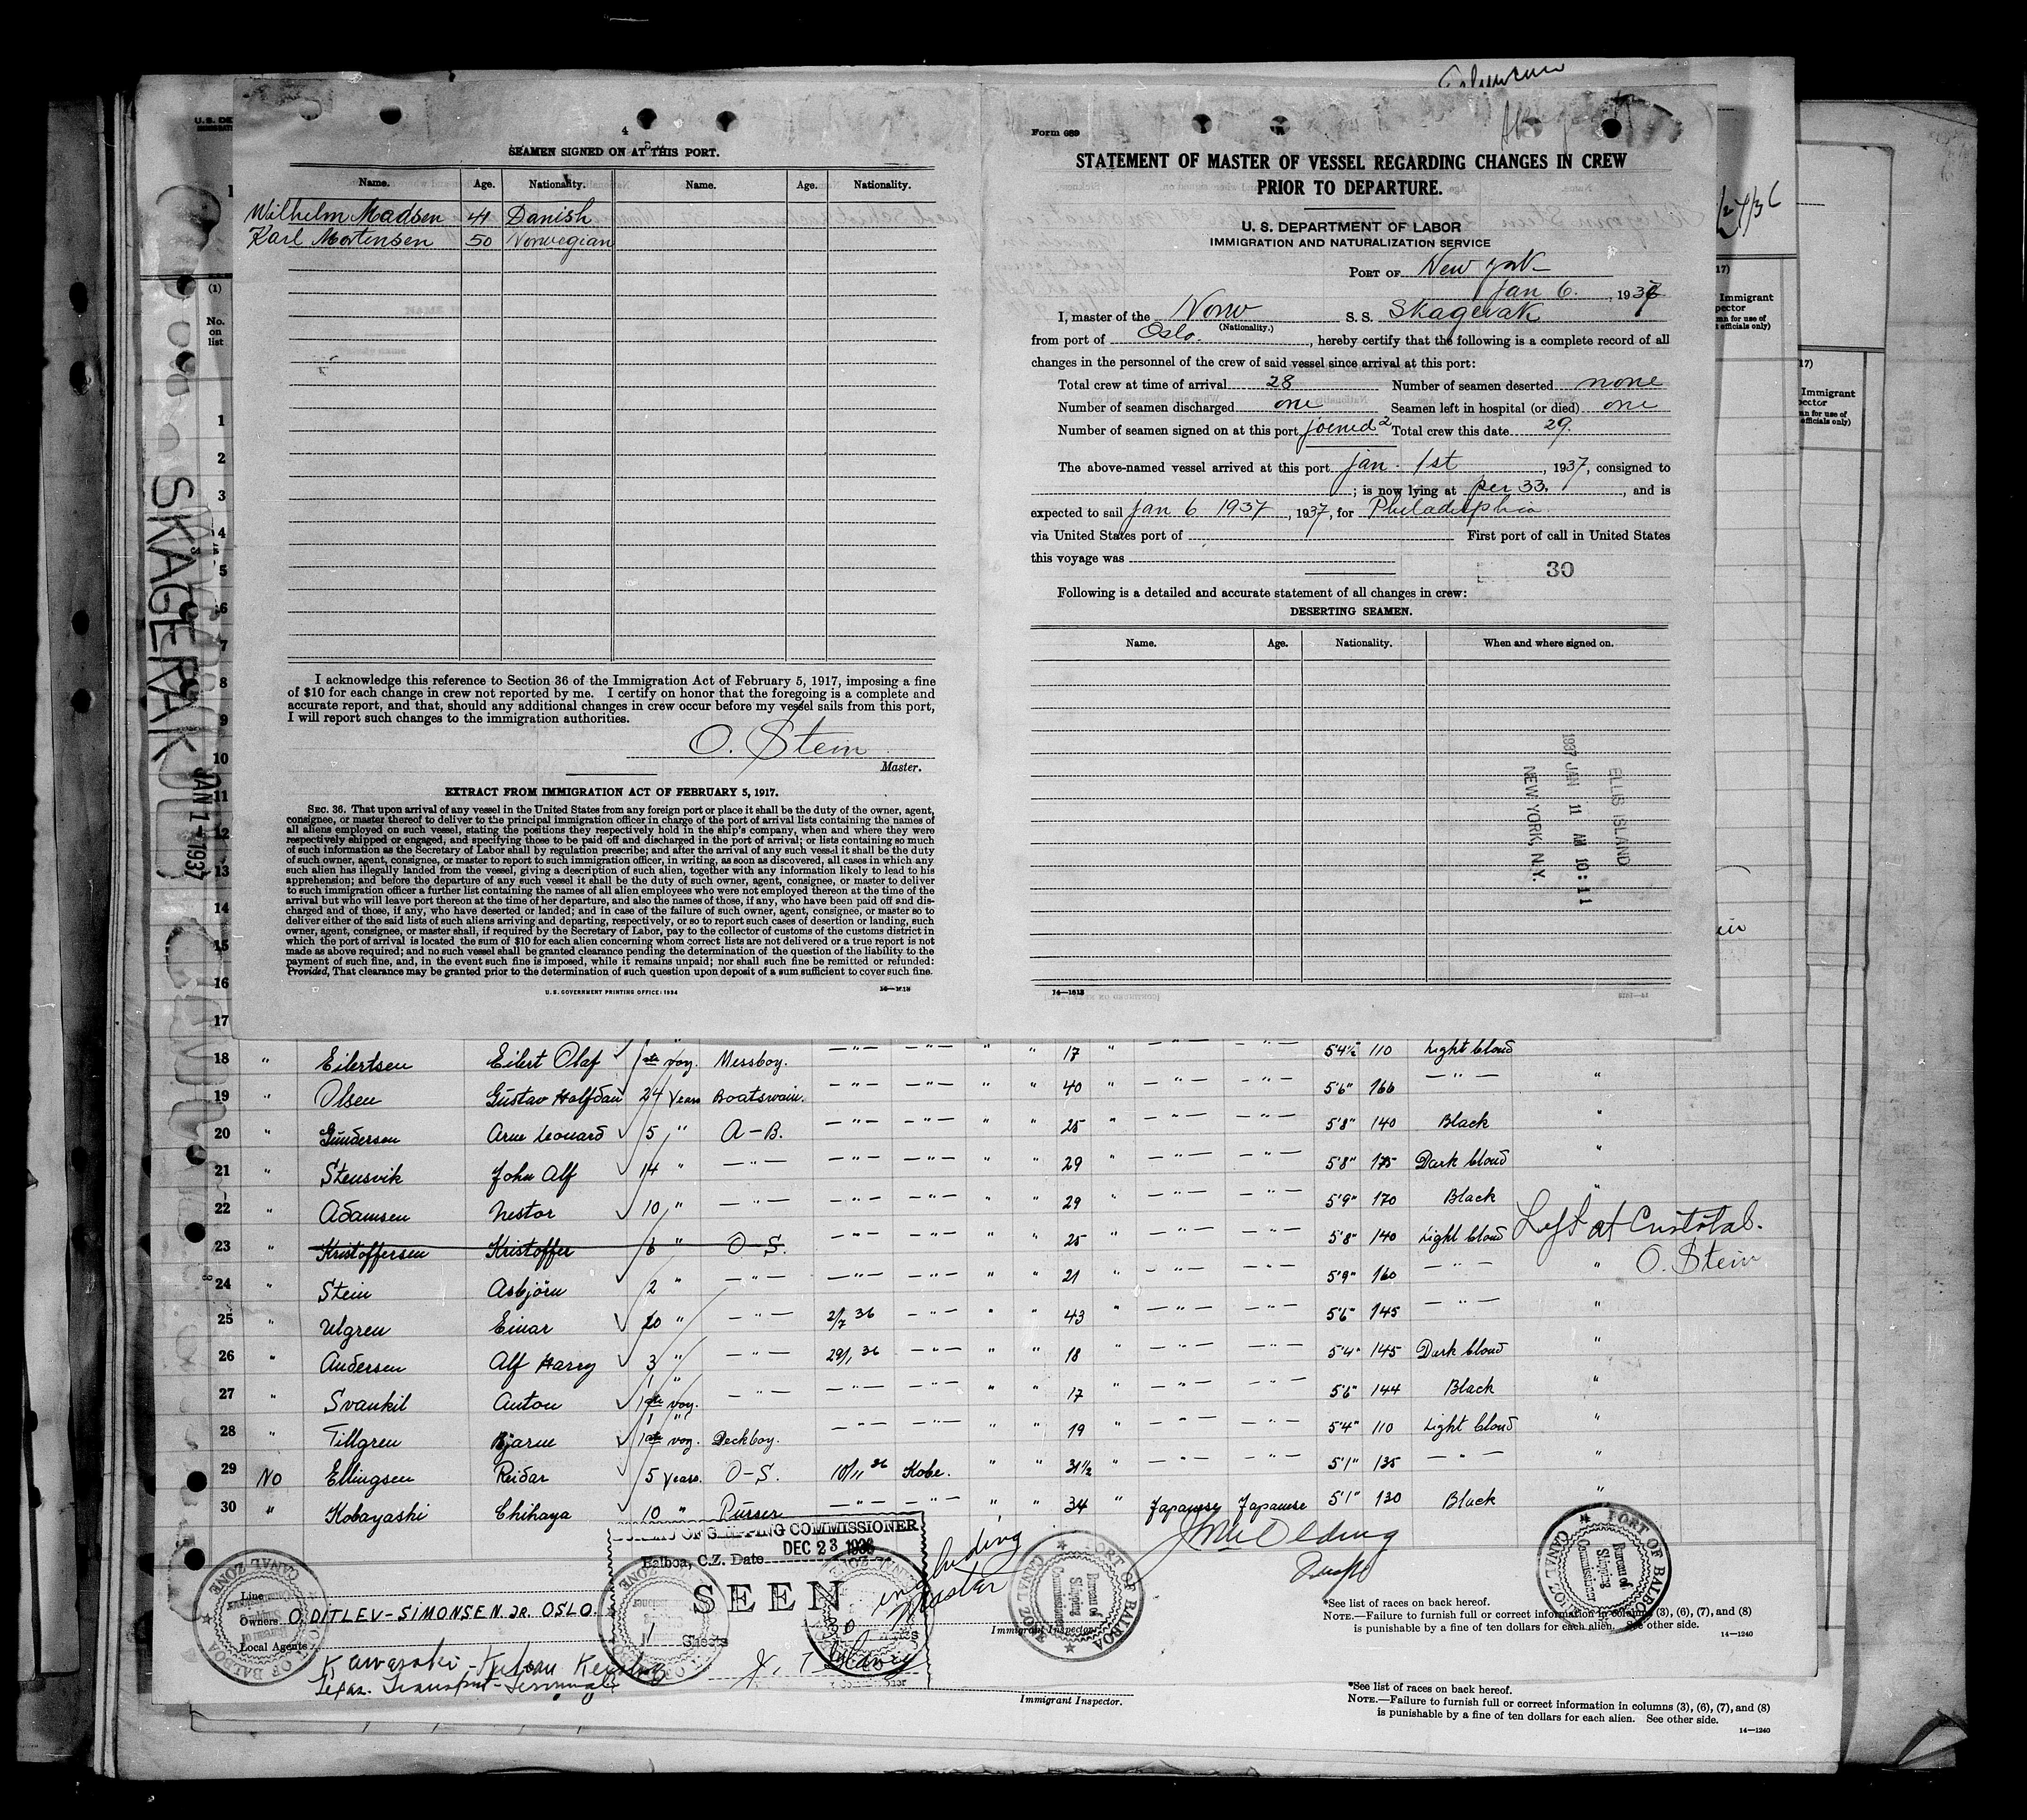 4
SEAMEN SIGNED ON AT THIS PORT.
Name. Age. Nationality. Name. Age. Nationality.
Wilhelm Madsen 41 Danish
Karl Mortensen 50 Norwegian
I acknowledge this reference to Section 36 of the Immigration Act of February 5, 1917, imposing a fine
of $10 for each change in crew not reported by me. I certify on honor that the foregoing is a complete and
accurate report, and that, should any additional changes in crew occur before my vessel sails from this port,
I will report such changes to the immigration authorities.
O. Stein
Master.
EXTRACT FROM IMMIGRATION ACT OF FEBRUARY 5, 1917.
SEC. 36. That upon arrival of any vessel in the United States from any foreign port or place it shall be the duty of the owner, agent,
consignee, or master thereof to deliver to the principal immigration officer in charge of the port of arrival lists containing the names of
all aliens employed on such vessel, stating the positions they respectively hold in the ship's company, when and where they were
respectively shipped or engaged, and specifying those to be paid off and discharged in the port of arrival; or lists containing so much
of such information as the Secretary of Labor shall by regulation prescribe; and after the arrival of any such vessel it shall be the duty
of such owner, agent, consignee, or master to report to such immigration officer, in writing, as soon as discovered, all cases in which any
such alien has illegally landed from the vessel, giving a description of such alien, together with any information likely to lead to his
apprehension; and before the departure of any such vessel it shall be the duty of such owner, agent, consignee, or master to deliver
to such immigration officer a further list containing the names of all alien employees who were not employed thereon at the time of the
arrival but who will leave port thereon at the time of her departure, and also the names of those, if any, who have been paid off and dis-
charged and of those, if any, who have deserted or landed; and in case of the failure of such owner, agent, consignee, or master so to
deliver either of the said lists of such aliens arriving and departing, respectively, or so to report such cases of desertion or landing, such
owner, agent, consignee, or master shall, if required by the Secretary of Labor, pay to the collector of customs of the customs district in
which the port of arrival is located the sum of $10 for each alien concerning whom correct lists are not delivered or a true report is not
made as above required; and no such vessel shall be granted clearance pending the determination of the question of the liability to the
payment of such fine, and, in the event such fine is imposed, while it remains unpaid; nor shall such fine be remitted or refunded:
Provided, That clearance may be granted prior to the determination of such question upon deposit of a sum sufficient to cover such fine.
U. S. GOVERNMENT PRINTING OFFICE: 1934
Form 689
STATEMENT OF MASTER OF VESSEL REGARDING CHANGES IN CREW
PRIOR TO DEPARTURE.
U. S. DEPARTMENT OF LABOR
IMMIGRATION AND NATURALIZATION SERVICE
PORT OF New York
Jan 6. , 1937
I, master of the Norw S. S. Skagerak
(Nationality.)
from port of Oslo. , hereby certify that the following is a complete record of all
changes in the personnel of the crew of said vessel since arrival at this port:
Total crew at time of arrival 28 Number of seamen deserted none
Number of seamen discharged one Seamen left in hospital (or died) one
Number of seamen signed on at this port joined 2 Total crew this date 29.
The above-named vessel arrived at this port Jan. 1st , 1937, consigned to
; is now lying at per 33. , and is
expected to sail Jan 6 1937 , 1937, for Philadelphia
via United States port of First port of call in United States
this voyage was
30
Following is a detailed and accurate statement of all changes in crew:
DESERTING SEAMEN.
Name. Age. Nationality. When and where signed on.
1937 JAN 11 AM 10:11
ELLIS ISLAND
NEW YORK, N.Y.
14—1613
SKAGERAK
JAN 1 - 1937
(1)
No.
on
list
1
2
3
4
5
6
7
8
9
10
11
12
13
14
15
16
17
18 " Eilertsen Eilert Olaf 1ste voy. Messboy. — " — — " — " " 17 " — " — — " — 5'4½ 110 Light bloud
19 " Olsen Gustav Halfdan 24 Years Boatswain. — " — — " — " " 40 " — " — — " — 5'6" 166 — " — "
20 " Gundersen Arne Leonard 5 " A-B. — " — — " — " " 25 " — " — — " — 5'8" 140 Black "
21 " Stensvik John Alf 14 " — " — — " — — " — " " 29 " — " — — " — 5'8" 175 Dark bloud "
22 " Adamsen Nestor 10 " — " — — " — — " — " " 29 " — " — — " — 5'9" 170 Black "
23 " Kristoffersen Kristoffer 6 " O-S. — " — — " — " " 25 " — " — — " — 5'8" 140 Light bloud Left at Cristobal.
24 " Stein Asbjörn 2 " — " — — " — — " — " " 21 " — " — — " — 5'9" 160 — " — " O. Stein
25 " Ulgren Einar 20 " — " — 2/7 36 — " — " " 43 " — " — — " — 5'6" 145 — " — "
26 " Andersen Alf Harry 3 " — " — 29/1 36 — " — " " 18 " — " — — " — 5'4" 145 Dark bloud "
27 " Svankil Anton 1ste voy. — " — — " — — " — " " 17 " — " — — " — 5'6" 144 Black "
28 " Tillgren Bjarne 1ste voy. Deckboy. — " — — " — " " 19 " — " — — " — 5'4" 110 Light bloud "
29 No Ellingsen Reidar 5 Years. O-S. 10/11 36 Kobe. " " 31½ " — " — — " — 5'1" 135 — " — "
30 " Kobayashi Chihaya 10 " Purser — " — — " — " " 34 " Japanese Japanese 5'1" 130 Black "
BUREAU OF SHIPPING COMMISSIONER
Balboa, C.Z. Date DEC 23 1936
SEEN
1 Sheets
30 including Master
Line
Owners O. DITLEV-SIMONSEN JR. OSLO.
Local Agents
PORT OF BALBOA
CANAL ZONE
Bureau of Shipping Commissioner
Immigrant Inspector.
*See list of races on back hereof.
NOTE.—Failure to furnish full or correct information in columns (3), (6), (7), and (8)
is punishable by a fine of ten dollars for each alien. See other side.
14—1240
Immigrant Inspector.
*See list of races on back hereof.
NOTE.—Failure to furnish full or correct information in columns (3), (6), (7), and (8)
is punishable by a fine of ten dollars for each alien. See other side.
14—1240